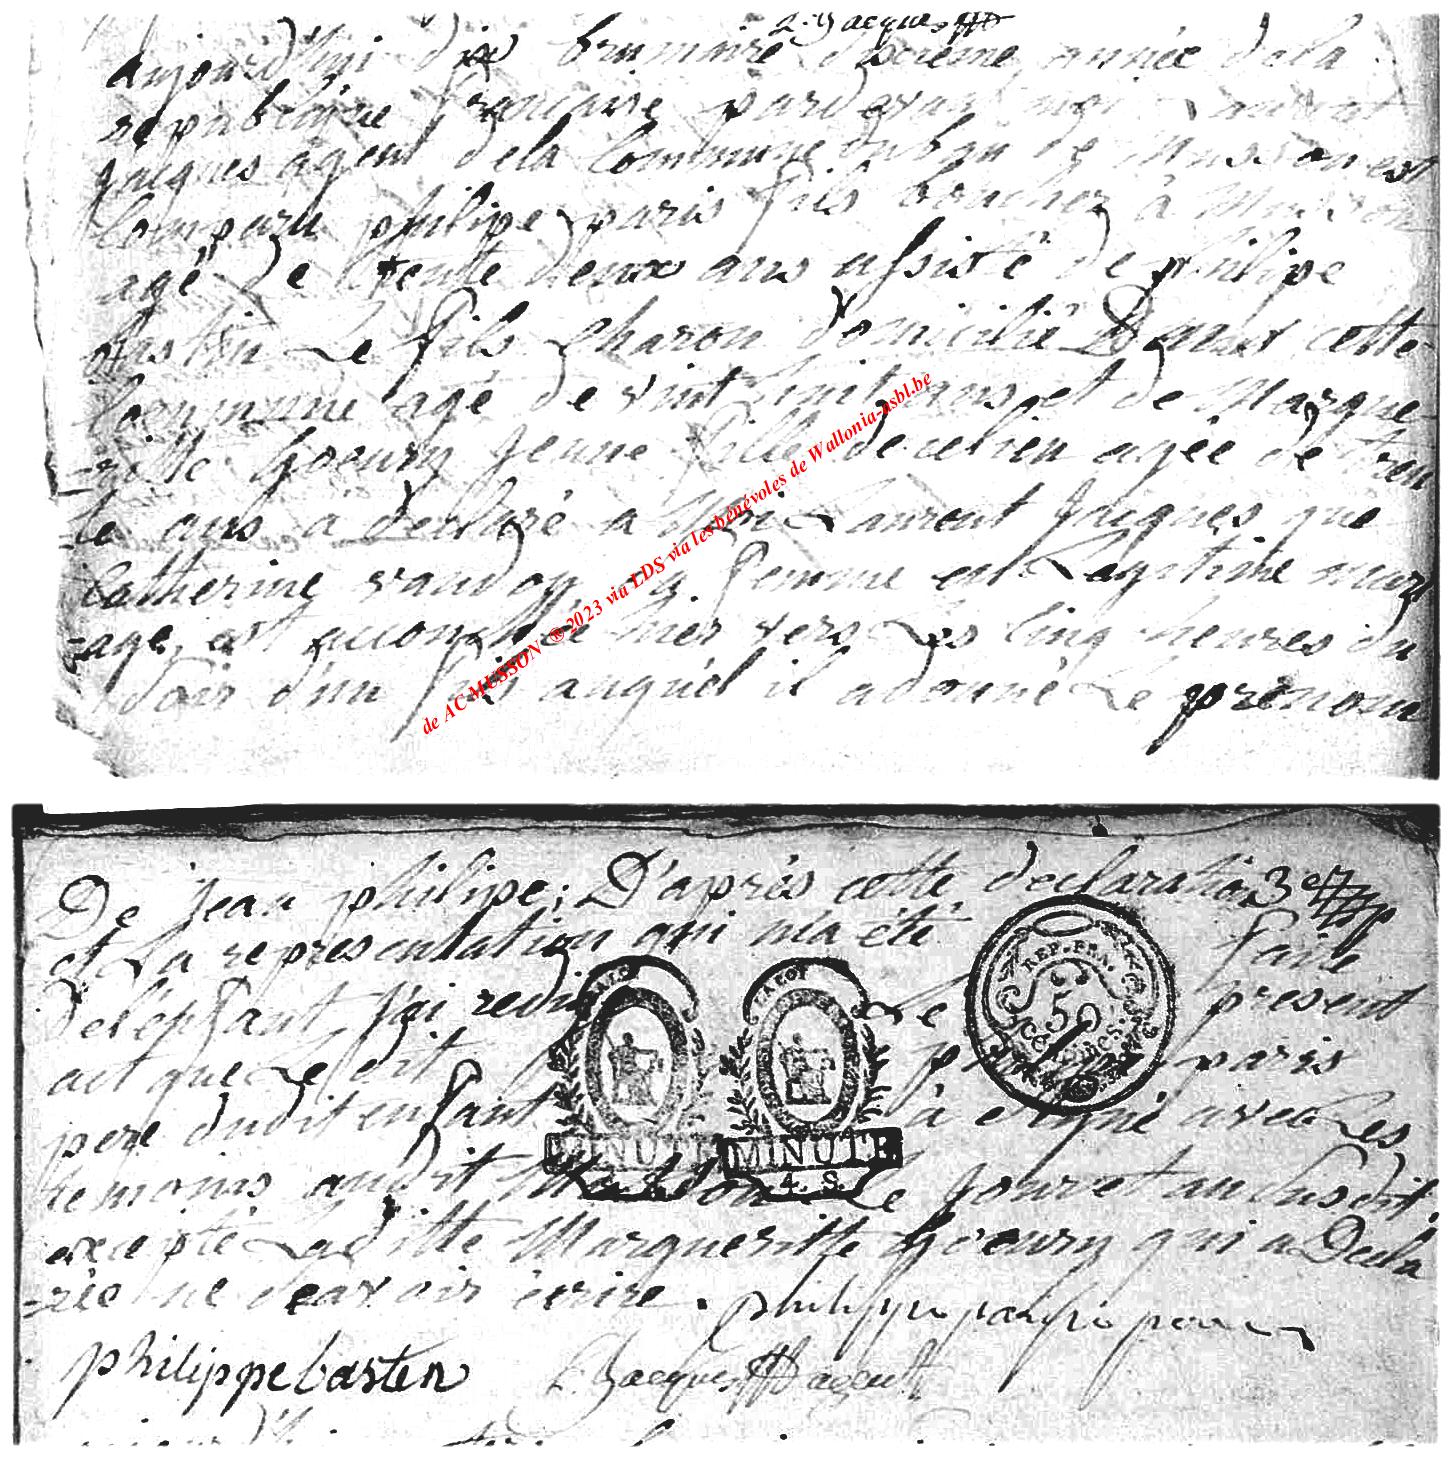 L. Jacques
aujourd'hui dix brumaire sixcieme année dela
republique françaire pardevant moi Laurent
Jacques agent dela Commune du ban de Musson est
Comparu philipe paris fils boucher à Musson
agé de trente deux ans assisté de philipe
le fils Charon domicilié Danst cette
Commune agé de vint huit ans et de Margue
-ritte Goeury Jeune fille de celien agée de tren
-te ans à declaré à Moi Laurent Jacques que
Catherine vaudoy sa femme en Legitime mari
-age, est accouchée hier vers Les Cinq heures du
soir d'un fils auquel il a donné Le prenom
de AC MUSSON ® 2023 via LDS via les bénévoles de Wallonia-asbl.be
De jean philipe; D'après cette declaration 3e
et La representation qui m'a été faite
del'enfant, j'ai redigé Le present
act que Le dit philipe paris
pere dudit enfant à signé avec Les
temoins audit Musson Le Jour et an susdit,
excepté Laditte Margueritte Goeury qui a Decla
-rée ne savoir écrire.
philippe paris
philippe basten L. Jacques agent
REP. FRA.
50
Centimes.
MINUTE
MINUTE
4. S.